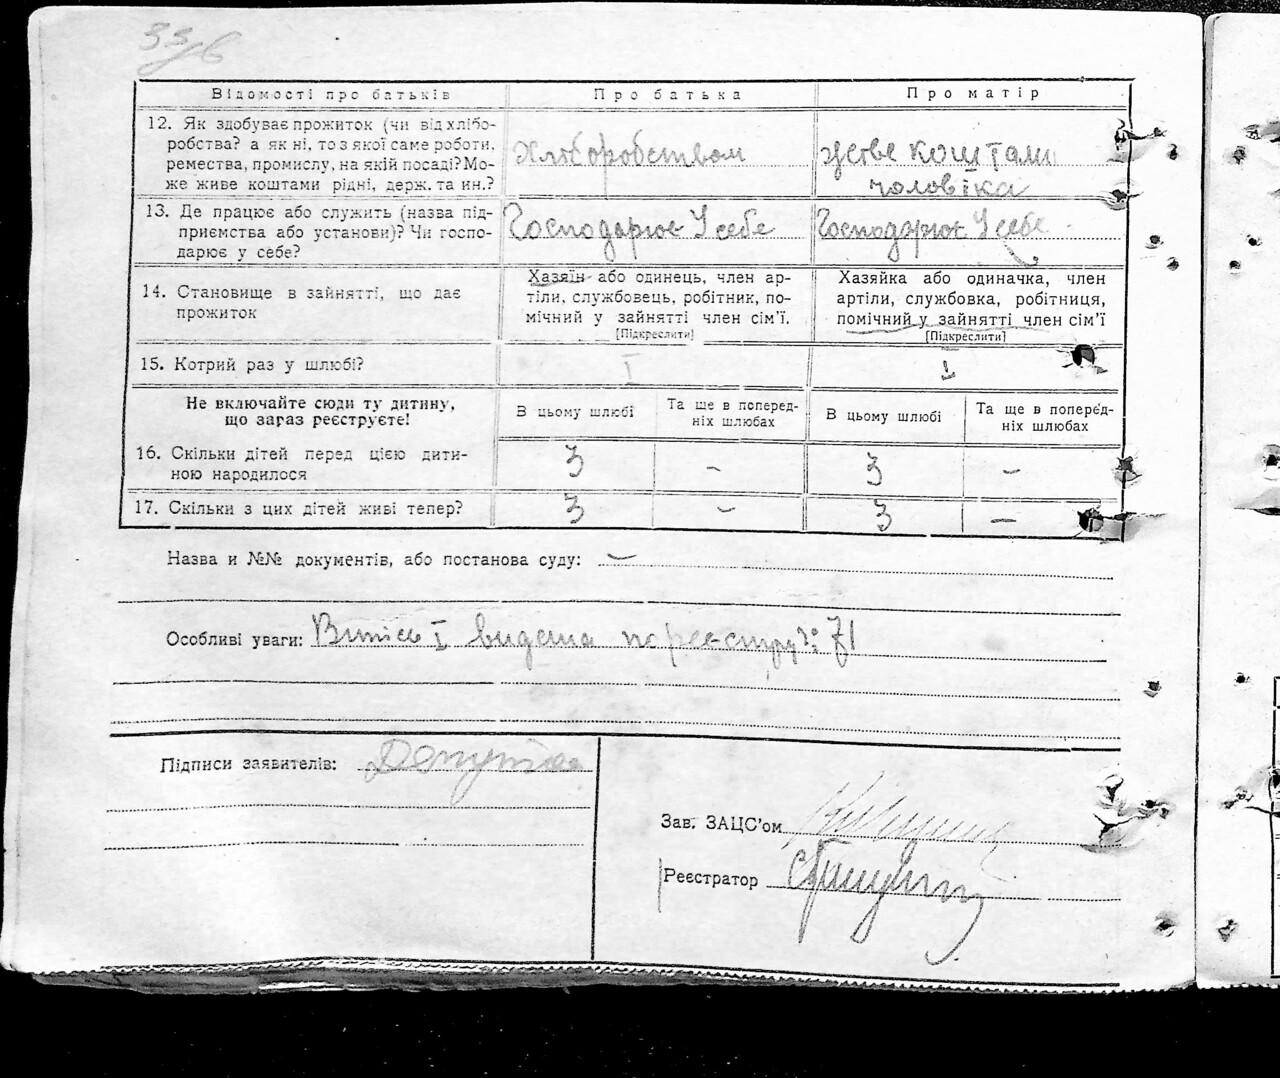 33/б
Відомості про батьків Про батька Про матір
12. Як здобуває прожиток (чи від хлібо-
робства? а як ні, то з якої саме роботи,
ремества, промислу, на якій посаді? Мо-
же живе коштами рідні, держ. та ин.?
Хліборобством
живе коштами
чоловіка
13. Де працює або служить (назва під-
приємства або установи)? Чи госпо-
дарює у себе?
Господарює У себе
Господарює У себе
14. Становище в зайнятті, що дає
прожиток
Хазяїн або одинець, член ар-
тіли, службовець, робітник, по-
мічний у зайнятті член сім'ї.
[Підкреслити]
Хазяйка або одиначка, член
артіли, службовка, робітниця,
помічний у зайнятті член сім'ї
[Підкреслити]
15. Котрий раз у шлюбі? I I
Не включайте сюди ту дитину,
що зараз реєструєте!
В цьому шлюбі
Та ще в поперед-
ніх шлюбах
В цьому шлюбі
Та ще в поперед-
ніх шлюбах
16. Скільки дітей перед цією дити-
ною народилося
3 - 3 -
17. Скільки з цих дітей живі тепер? 3 - 3 -
Назва и №№ документів, або постанова суду: -
Особливі уваги: Витіс I видана по реєстру 71
Підписи заявителів:
Зав. ЗАЦС'ом
Реєстратор